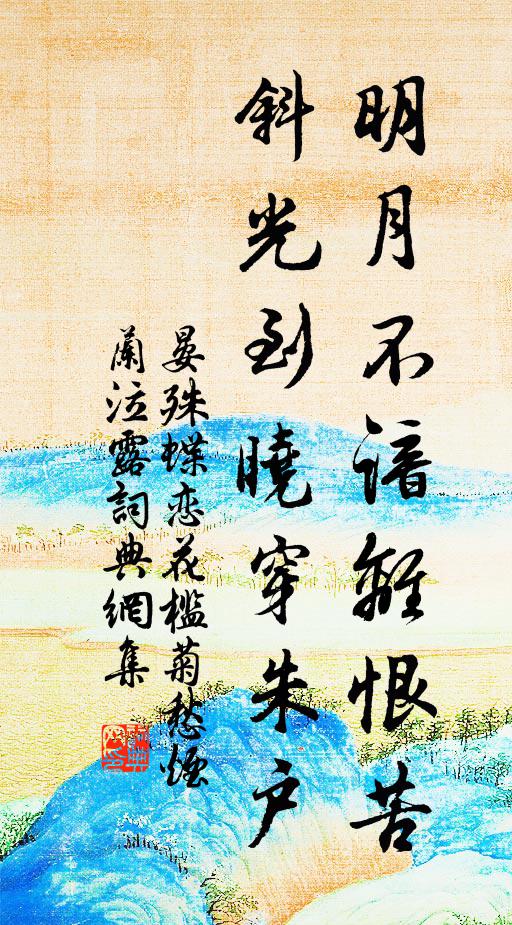 明月不諳離恨苦
斜光到曉穿朱户
晏殊蝶恋花槛菊愁煙
蘭泣露詞典網集